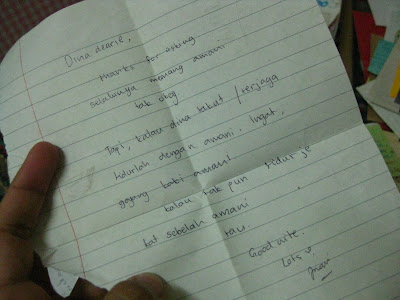 Dina dearie,
Thanks for asking
selalunya memang amani
tak oteg
Tapi, kalau dina takut / terjaga
tidurlah dengan amani. Ingat,
gojeng babi amani!
kalau tak pun tidur je
kat sebelah amani
tau
Good nite.
Lots